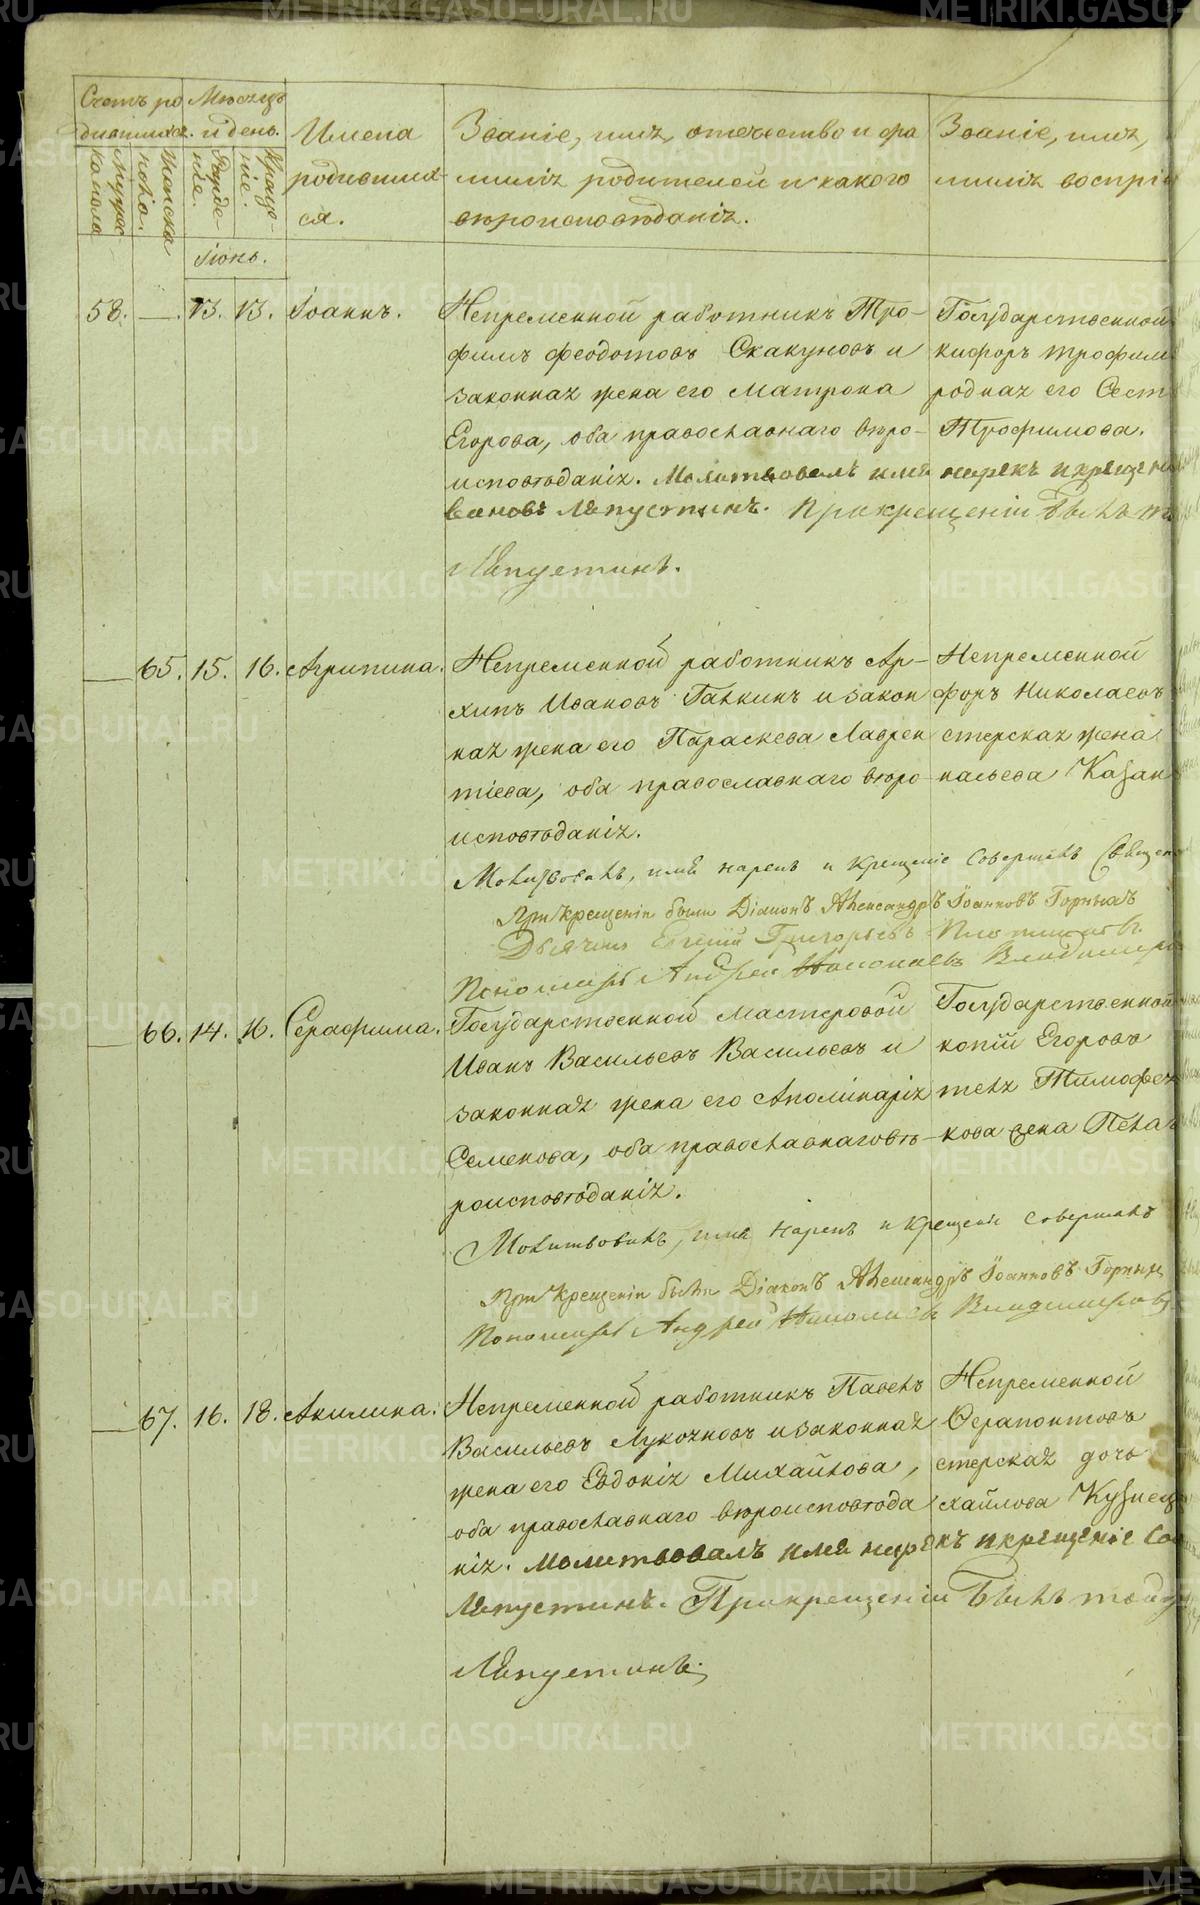 METRIKI.GASO-URAL.RU
Счетъ ро Мѣсяцъ
дившихся. и день.
Мужес-
каго пола
Женска
го.
Рожде
нія.
Креще-
нія.
Имена
родивших-
ся.
Званіе, имя, отечество и фа
милія родителей и какого
вѣроисповѣданія.
Званіе, имя,
милія воспрі
Іюнь.
58. — 13. 13. Іоаннъ.
Непременной работникъ Тро-
фимъ Феодотовъ Скакуновъ и
законная жена его Матрона
Егорова, оба православнаго вѣро-
исповѣданія. Молитвовалъ имя нарекъ и креще
Лапустинъ. При крещеніи былъ
Лапустинъ.
Государственной
кифоръ Трофим
родная его Сест
Трофимова.
— 65. 15. 16. Агрипина.
Непременной работникъ Ар-
хипъ Ивановъ Галкинъ и закон
ная жена его Параскева Лаврен
тіева, оба православнаго вѣро-
исповѣданія.
Непременной
форъ Николаевъ
стерская жена
Казан
Молитвовалъ, имя нарекъ и крещеніе совершалъ Свящ
При крещеніи были Діаконъ Александръ Іоанновъ Горныхъ
Дьячекъ Евгеній Григорьевъ
Пономарь Андрей Николаевъ Владимиров
— 66. 14. 16. Серафима.
Государственной мастеровой
Иванъ Васильевъ Васильевъ и
законная жена его Аполинарія
Семенова, оба православнаго вѣ-
роисповѣданія.
Государственной
копій Егоровъ
тель Тимофе
кова жена Пела
Молитвовалъ, имя нарекъ и крещеніе совершалъ
При крещеніи были Діаконъ Александръ Іоанновъ Горныхъ
Пономарь Андрей Николаевъ Владимиров
— 67. 16. 18. Акилина.
Непременной работникъ Павелъ
Васильевъ Лукояновъ и законная
жена его Евдокія Михайлова,
оба православнаго вѣроисповѣда
нія. Молитвовалъ имя нарекъ и крещеніе со
Лапустинъ. При крещеніи былъ
Лапустинъ.
Непременной
Серапонтовъ
стерская дочь
хайлова Кузнец